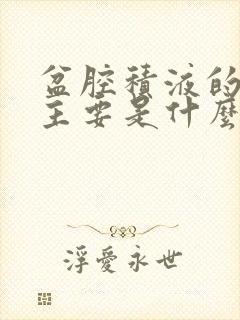 盆腔積液的
主要是什麼
浮愛永世